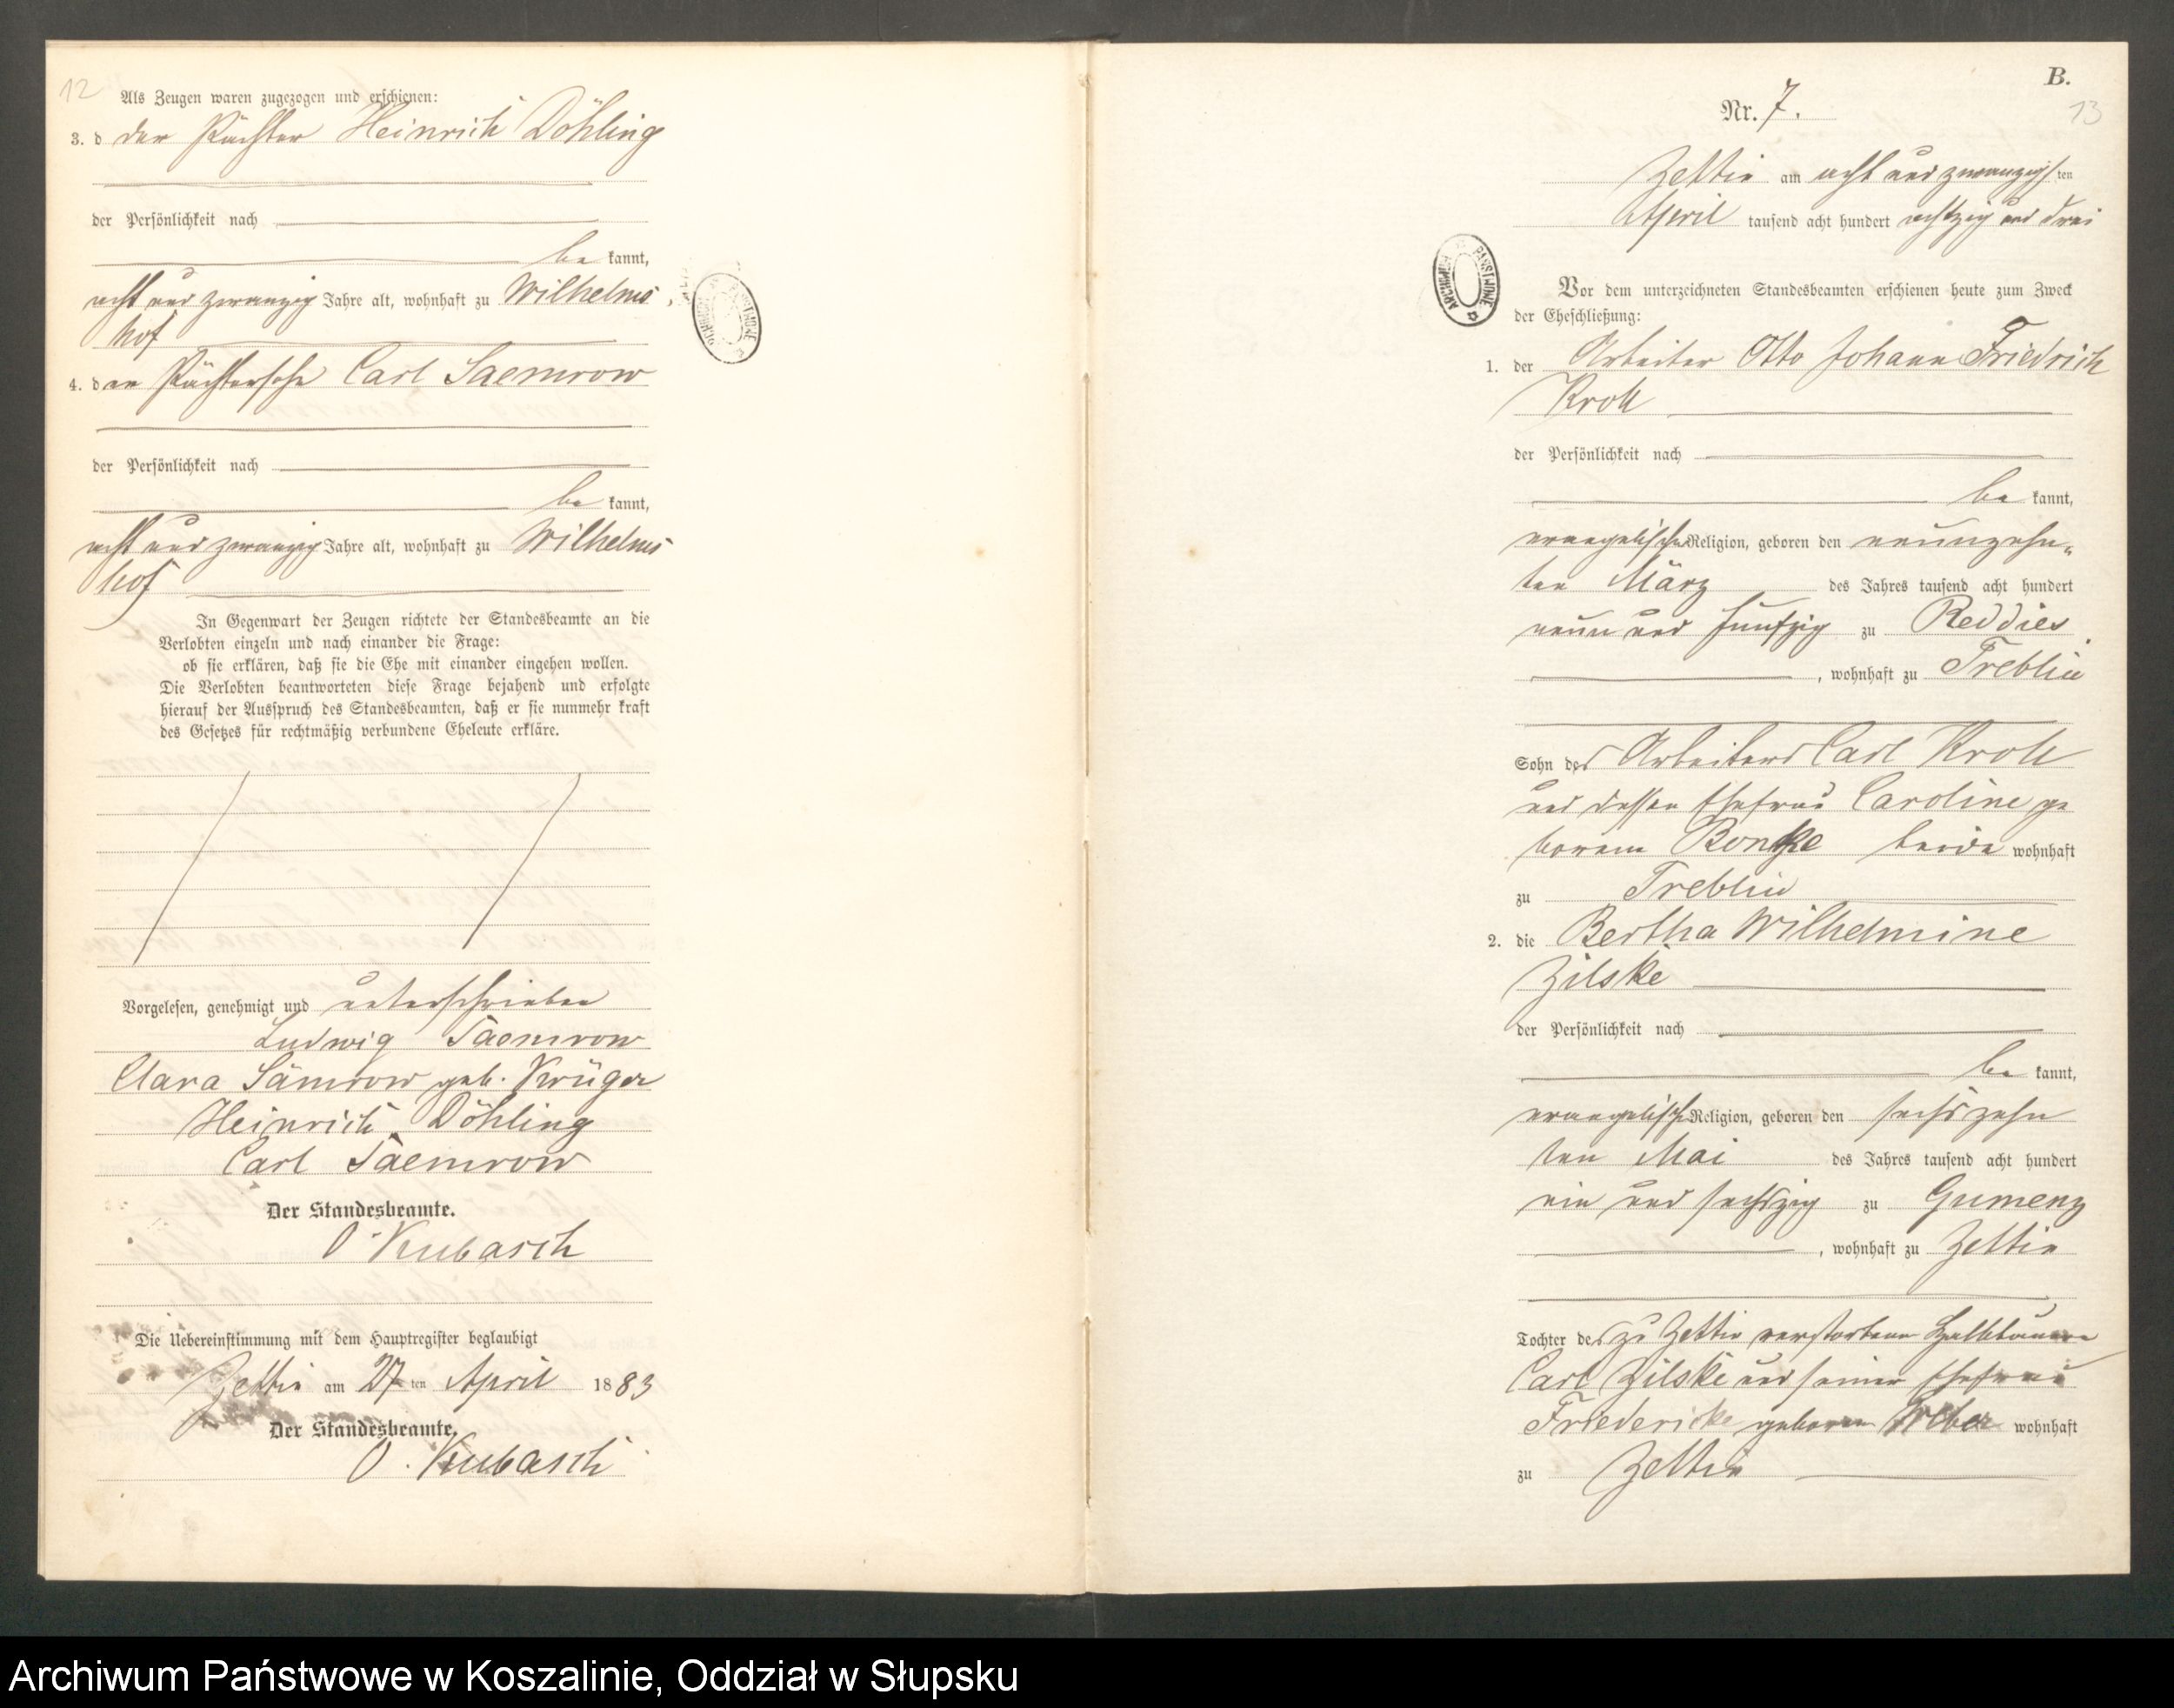 12
Als Zeugen waren zugezogen und erschienen:
3. d der Pächter Heinrich Döhling
der Persönlichkeit nach
be kannt,
acht und zwanzig Jahre alt, wohnhaft zu Wilhelms
hof
4. der Pächtersohn Carl Saemrow
der Persönlichkeit nach
be kannt,
acht und zwanzig Jahre alt, wohnhaft zu Wilhelms
hof
In Gegenwart der Zeugen richtete der Standesbeamte an die
Verlobten einzeln und nach einander die Frage:
ob sie erklären, daß sie die Ehe mit einander eingehen wollen.
Die Verlobten beantworteten diese Frage bejahend und erfolgte
hierauf der Ausspruch des Standesbeamten, daß er sie nunmehr kraft
des Gesetzes für rechtmäßig verbundene Eheleute erkläre.
Vorgelesen, genehmigt und unterschrieben
Ludwig Saemrow
Clara Sämrow geb. Krüger
Heinrich Döhling
Carl Saemrow
Der Standesbeamte.
O. Kubasch
Die Uebereinstimmung mit dem Hauptregister beglaubigt
Zettin am 27 ten April 1883
Der Standesbeamte.
O. Kubasch
B.
13
Nr. 7.
Zettin am acht und zwanzigsten
April tausend acht hundert achtzig und drei
ARCHIWUM PAŃSTWOWE
Vor dem unterzeichneten Standesbeamten erschienen heute zum Zweck
der Eheschließung:
1. der Arbeiter Otto Johann Friedrich
Kroll
der Persönlichkeit nach
be kannt,
evangelischer Religion, geboren den neunzehn-
ten März des Jahres tausend acht hundert
neun und fünfzig zu Reddies
, wohnhaft zu Treblin
Sohn des Arbeiters Carl Kroll
und dessen Ehefrau Caroline ge
borene beide wohnhaft
zu Treblin
2. die Bertha Wilhelmine
Zilske
der Persönlichkeit nach
be kannt,
evangelischer Religion, geboren den sechszehn
ten Mai des Jahres tausend acht hundert
ein und sechszig zu Gumenz
, wohnhaft zu Zettin
Tochter des zu Zettin verstorbenen Halbbauern
Carl Zilske und seiner Ehefrau
Friedericke geborene Weber wohnhaft
zu Zettin
Archiwum Państwowe w Koszalinie, Oddział w Słupsku